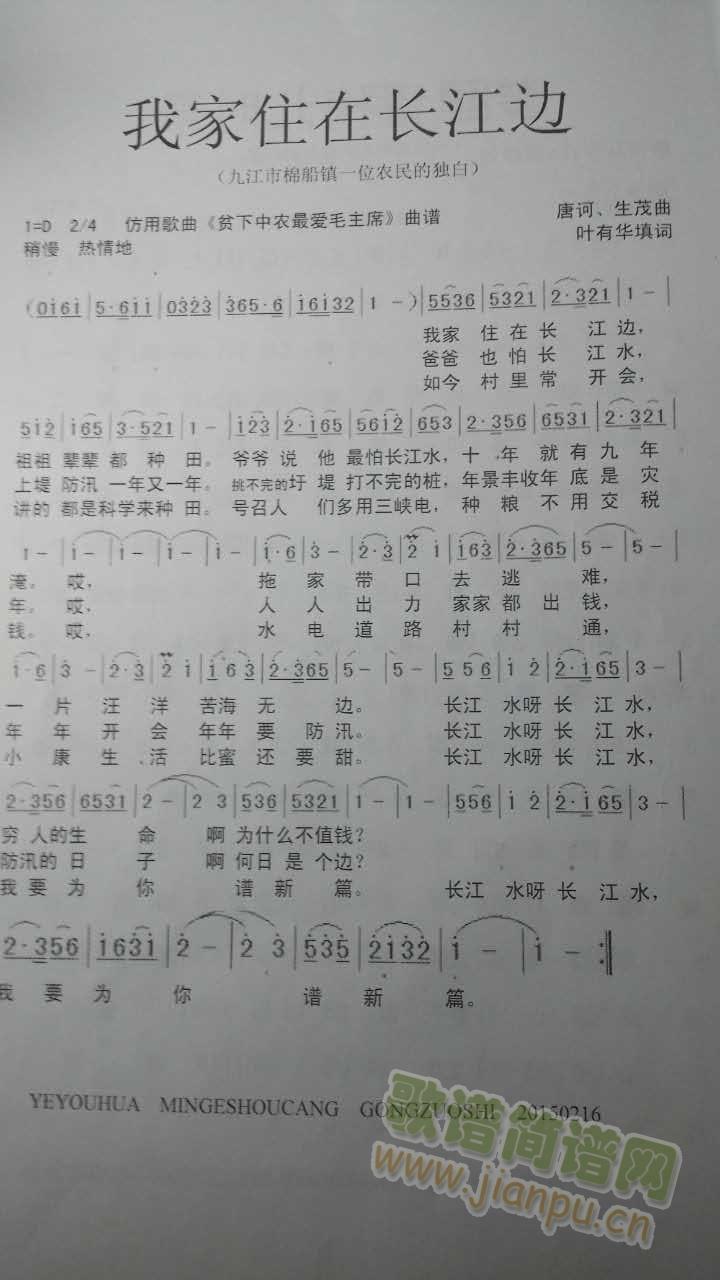 我家住在长江边
(九江市棉船镇一位农民的独白)
1=D 2/4 仿用歌曲《贫下中农最爱毛主席》曲谱 唐诃、生茂曲
稍慢 热情地 叶有华填词
(0i6i|5·6ii|0323|365·6|i6i32|1-)|5536|5321|2·321|1-|
我家 住在长 江边,
爸爸 也怕长 江水,
如今 村里常 开会,
5i2|i65|3·521|1-|i23|2·i65|56i2|653|2·356|6531|2·321|
祖祖 辈辈 都 种 田。 爷爷 说 他 最怕长江水, 十 年 就 有 九 年
上堤 防汛 一年又一年。 挑不完的圩 堤 打不完的桩, 年景丰收年 底 是 灾
讲的 都是科学来种 田。 号召人 们多用三峡电, 种 粮 不 用 交 税
1-|i-|i-|i-|i-|i·6|3-|2·3|2i|i63|2·365|5-|5-|
淹。 哎, 拖 家 带 口 去 逃 难,
年。 哎, 人 人 出 力 家家 都 出 钱,
钱。 哎, 水 电 道 路 村 村 通,
i·6|3-|2·3|2i|i63|2·365|5-|5-|556|i2|2·i65|3-|
一 片 汪 洋 苦海 无 边。 长江 水呀 长 江 水,
年 年 开 会 年年 要 防 汛。 长江 水呀 长 江 水,
小 康 生 活 比蜜 还 要 甜。 长江 水呀 长 江 水,
2·356|6531|2-|23|536|5321|1-|1-|556|i2|2·i65|3-|
穷 人的生 命 啊 为什么不值钱?
防汛的 日 子 啊 何日 是 个边?
我 要 为 你 谱 新 篇。 长江 水呀 长 江 水,
2·356|i63i|2-|23|535|2i32|i-|i-:|
我 要 为 你 谱 新 篇。
YEYOUHUA MINGESHOUCANG GONGZUOSHI 20150216
歌谱简谱网
www.jianpu.cn